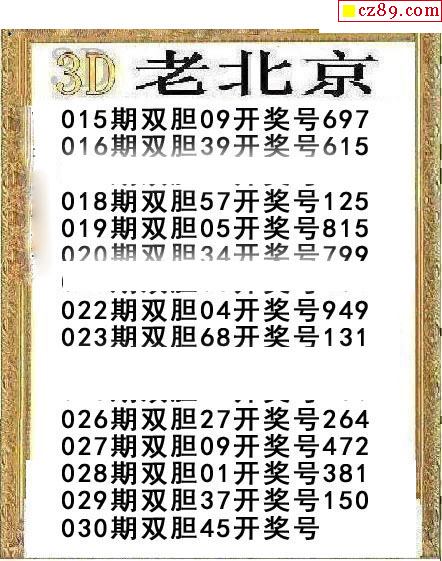 cz89.com
3D 老北京
015期双胆09开奖号697
016期双胆39开奖号615
018期双胆57开奖号125
019期双胆05开奖号815
020期双胆34开奖号799
022期双胆04开奖号949
023期双胆68开奖号131
026期双胆27开奖号264
027期双胆09开奖号472
028期双胆01开奖号381
029期双胆37开奖号150
030期双胆45开奖号